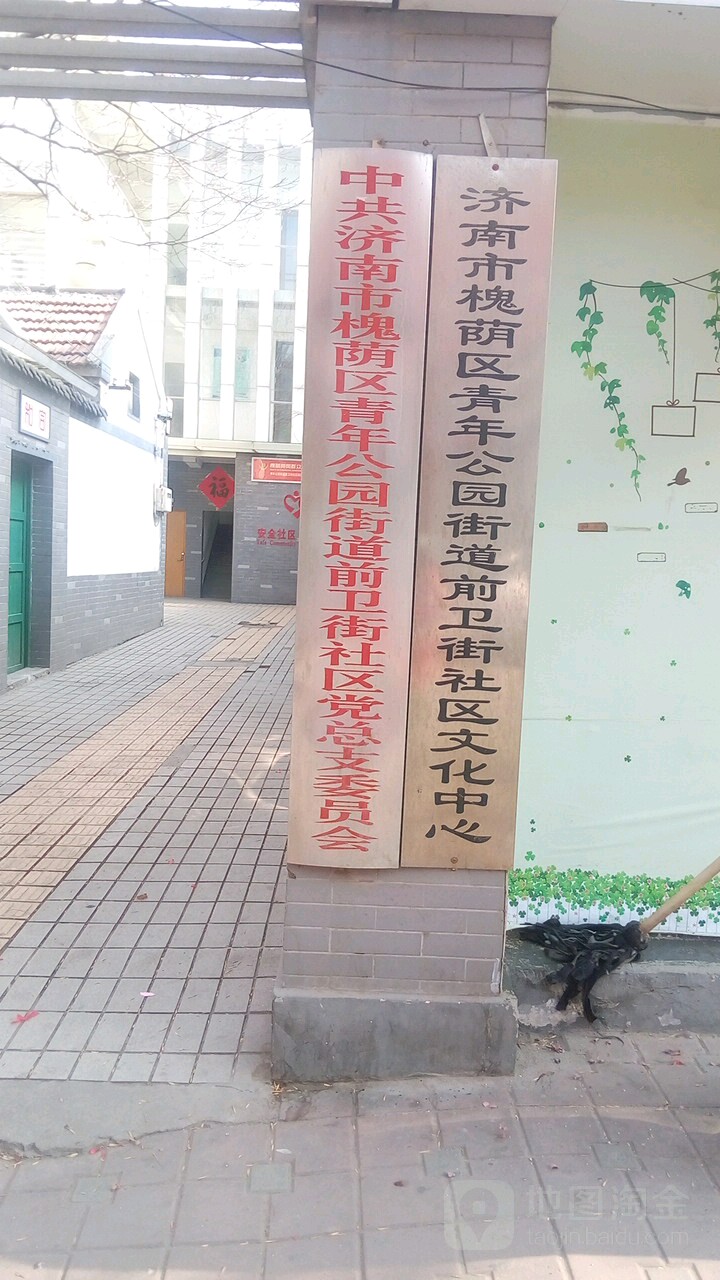 中共济南市槐荫区青年公园街道前卫街社区党总支委员会
济南市槐荫区青年公园街道前卫街社区文化中心
福
安全社区
Safe Community
地图淘金
taojin.baidu.com